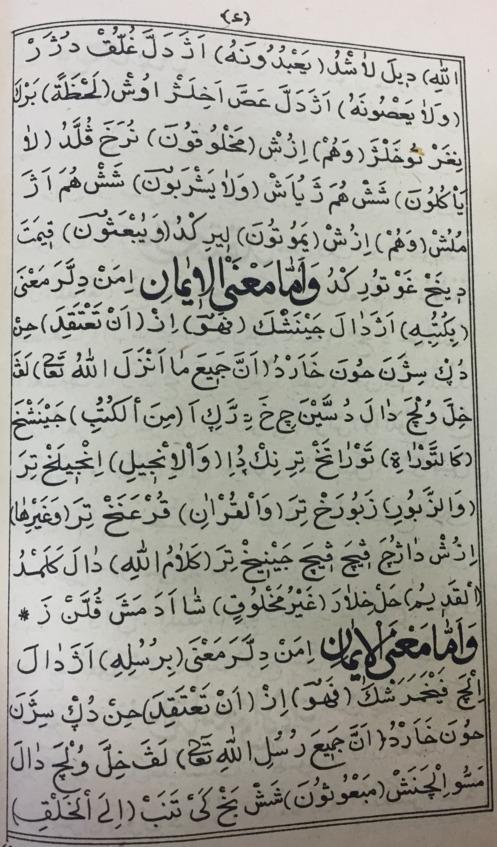 ﴿٤﴾
اللّٰهِ) دِيلَ لاٰشْدُ (يَعْبُدُونَهُ) اَژْدَلَّ غُلُّقْ دُژَرْ
(وَلَا يَعْصُونَهُ) اَژْدَلَّ عَصَّ اَخِلَژْ اوُشْ (لَحْظَةً) بَرْكَ
نِغَرْ تُوخَلَژَ (وَهُمْ) اِزُشْ (مَخْلُوقُونَ) نُرَخَ قُلَّدُ (لَا
يَأْكُلُونَ) شَشْ هُمَ ژَ يُاَشْ (وَلَا يَشْرَبُونَ) شَشْ هُمَ اَژَ
مُنُشْ (وَهُمْ) اِزُشْ (يَمُوتُونَ) لِيرِ كْدُ (وَيُبْعَثُونَ) قِيمَتَ
دِينَخْ غَوْ تُورِ كْدُ وَاَمَّا مَعْنَى الْاِيمَانِ اِمَنْ دِلَّرَ مَعْنَى
(بِكُتُبِهِ) اَژْدَالَ جَيْنَشْكَ (فَهُوَ) اِذْ (اَنْ تَعْتَقِدَ) حِنْ
دُكْ سِژَنَ حُونَ خَارْدُ (اَنَّ جَمِيعَ مَا اَنْزَلَ اللّٰهُ تعالى) لَقَ
خِلَّ وُلِچَ دٰالَ دُسِّيْنَ چَخَ دِرَّكِ اَ (مِنَ الْكُتُبِ) جَيْنَشَخَ
(كَالتَّوْرٰاةِ) تَوْرٰاتَخْ تِرِ نِكْ دُا (وَالْاِنْجِيلِ) اِنْجِيلَخْ تِرَ
(وَالزَّبُورِ) زَبُورَخْ تِرَ (وَالْقُرْاٰنِ) قُرْعَنَخْ تِرَ (وَغَيْرِهَا)
اِزُشْ دٰاژُچَ قِيچَ قِيچَ جَيْنِيخْ تِرَ (كَلَامُ اللّٰهِ) دٰالَ كَلَمْدُ
(الْقَدِيمُ) حَلْ خِلٰازَ (غَيْرُ مَخْلُوقٍ) شٰا اَدَ مَشَ قُلَّنْ زَ *
وَاَمَّا مَعْنَى الْاِيمَانِ اِمَنْ دِلَّرَ مَعْنَى (بِرُسُلِهِ) اَژْدٰالَ
اِلْچَ فَيْخَمَرَشْكَ (فَهُوَ) اِذْ (اَنْ تَعْتَقِدَ) حِنْ دُكْ سِژَنَ
حُونَ خَارْدُ (اَنَّ جَمِيعَ رُسُلِ اللّٰهِ تعالى) لَقَ خِلَّ وُلِچَ دٰالَ
مَسُّو اِلْچَنَشْ (مَبْعُوثُونَ) شَشْ بَخْ كَىْ تَنَبْ (اِلَى الْخَلْقِ)